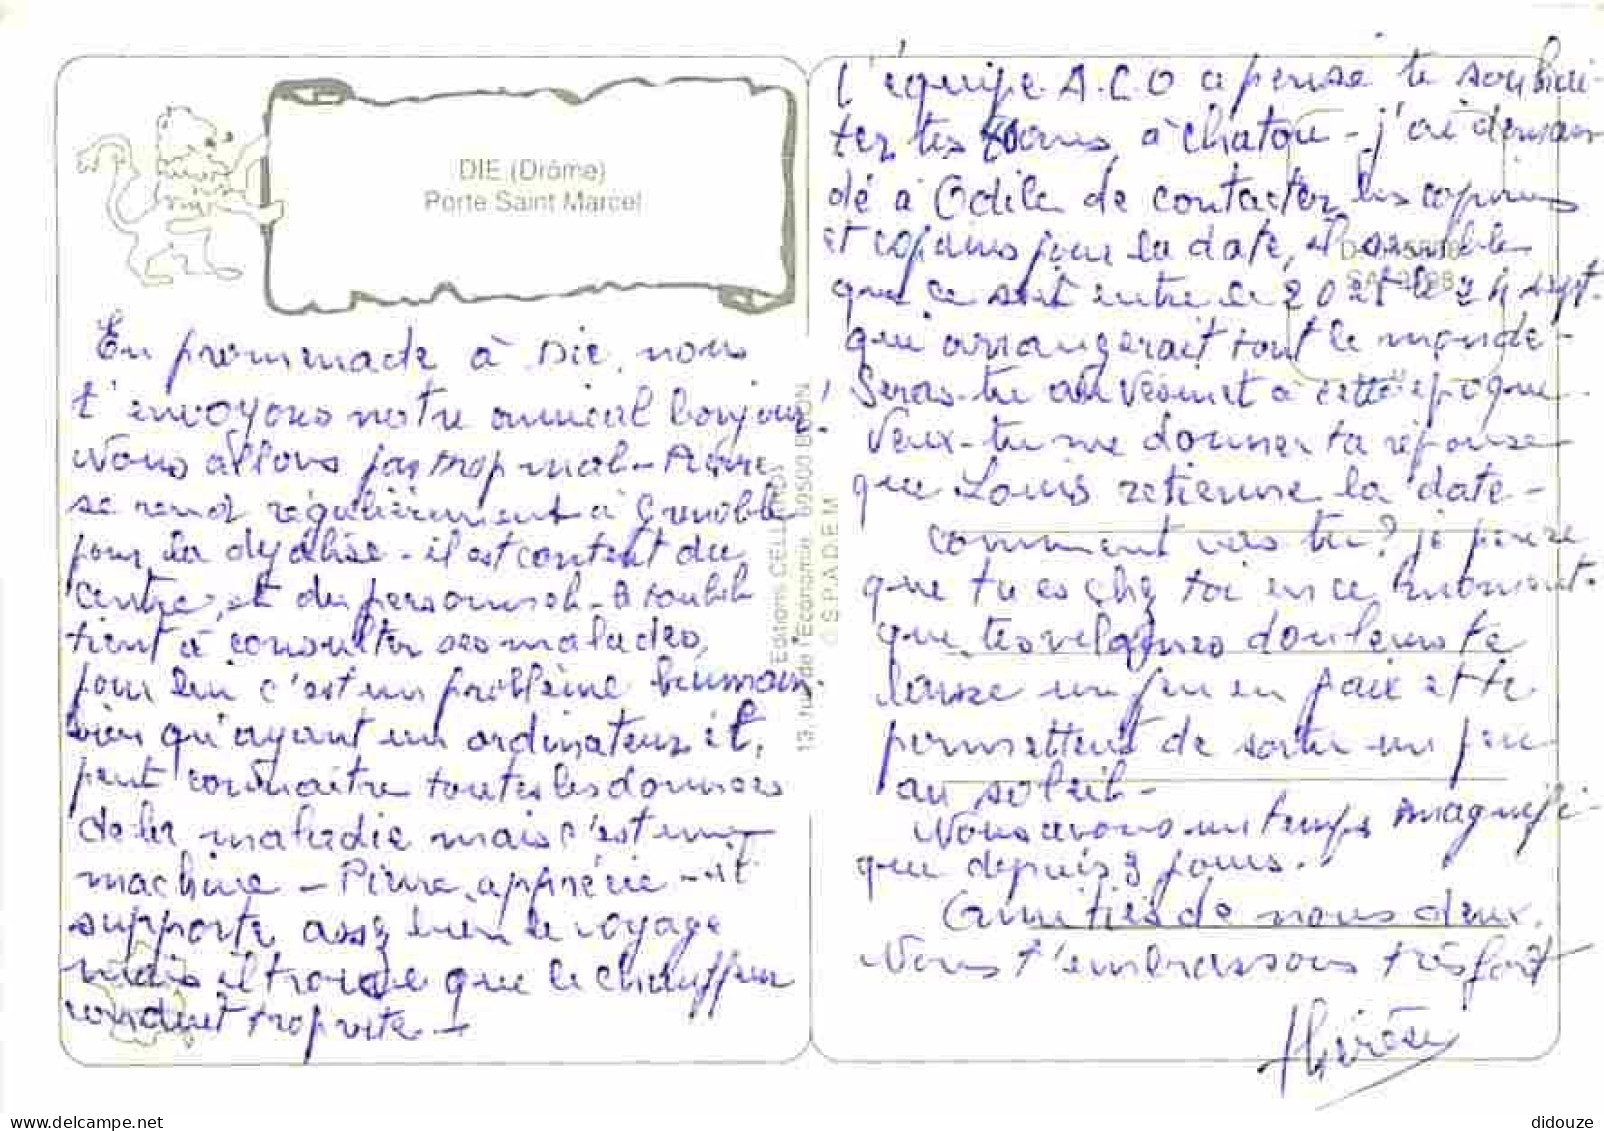 DIE (Drôme)
Porte Saint Marcel
En prommade à Die, nous
t'envoyons notre amical bonjour!
Nous allons pas trop mal - Pierre
se rend régulièrement à Grenoble
pour la dyalise - il est content du
centre, et du personnel -
tient à consulter ses malades,
pour lui c'est un problème humain
bien qu'ayant un ordinateur il
peut connaitre toutes les données
de la maladie mais c'est une
machine - Pierre apprécie - il
supporte assez bien le voyage
mais il trouve que le chauffeur
conduit trop vite -
Editions CELLARD
13, rue de l'Economie, 69500 BRON
© S.P.A.D.E.M
L'équipe A.C.O a pensé te souhai-
ter tes à Chatou - j'ai deman
dé à Odile de contacter les copines
et copains pour la date, il semble
que ce soit entre le 20 et le 24 sept.
qui arrangerait tout le monde -
Seras-tu au Vésinet à cette époque
Veux-tu me donner ta réponse
que Louis retienne la date -
comment vas tu? je pense
que tu es chez toi en ce moment.
que tes douleurs te
laisse un peu en paix et te
permettent de sortir un peu
au soleil -
Nous avons un temps magnifi-
que depuis 3 jours.
Amitiés de nous deux.
Nous t'embrassons très fort
Thérèse
didouze